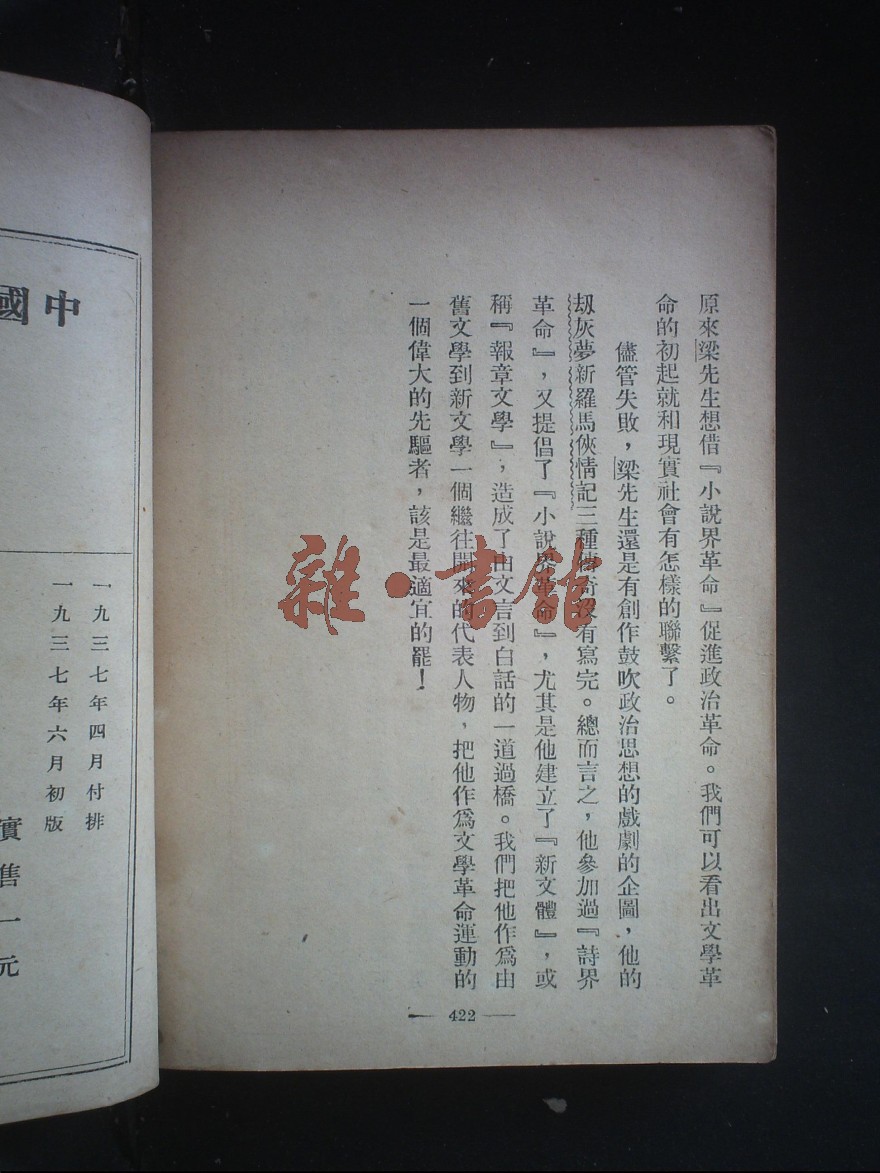 原來梁先生想借『小說界革命』促進政治革命。我們可以看出文學革
命的初起就和現實社會有怎樣的聯繫了。
儘管失敗，梁先生還是有創作鼓吹政治思想的戲劇的企圖，他的
刼灰夢新羅馬俠情記三種傳奇沒有寫完。總而言之，他參加過『詩界
革命』，又提倡了『小說界革命』，尤其是他建立了『新文體』，或
稱『報章文學』，造成了由文言到白話的一道過橋。我們把他作爲由
舊文學到新文學一個繼往開來的代表人物，把他作爲文學革命運動的
一個偉大的先驅者，該是最適宜的罷！
422
雜·書館
中國
一九三七年四月付排
一九三七年六月初版
實售一元